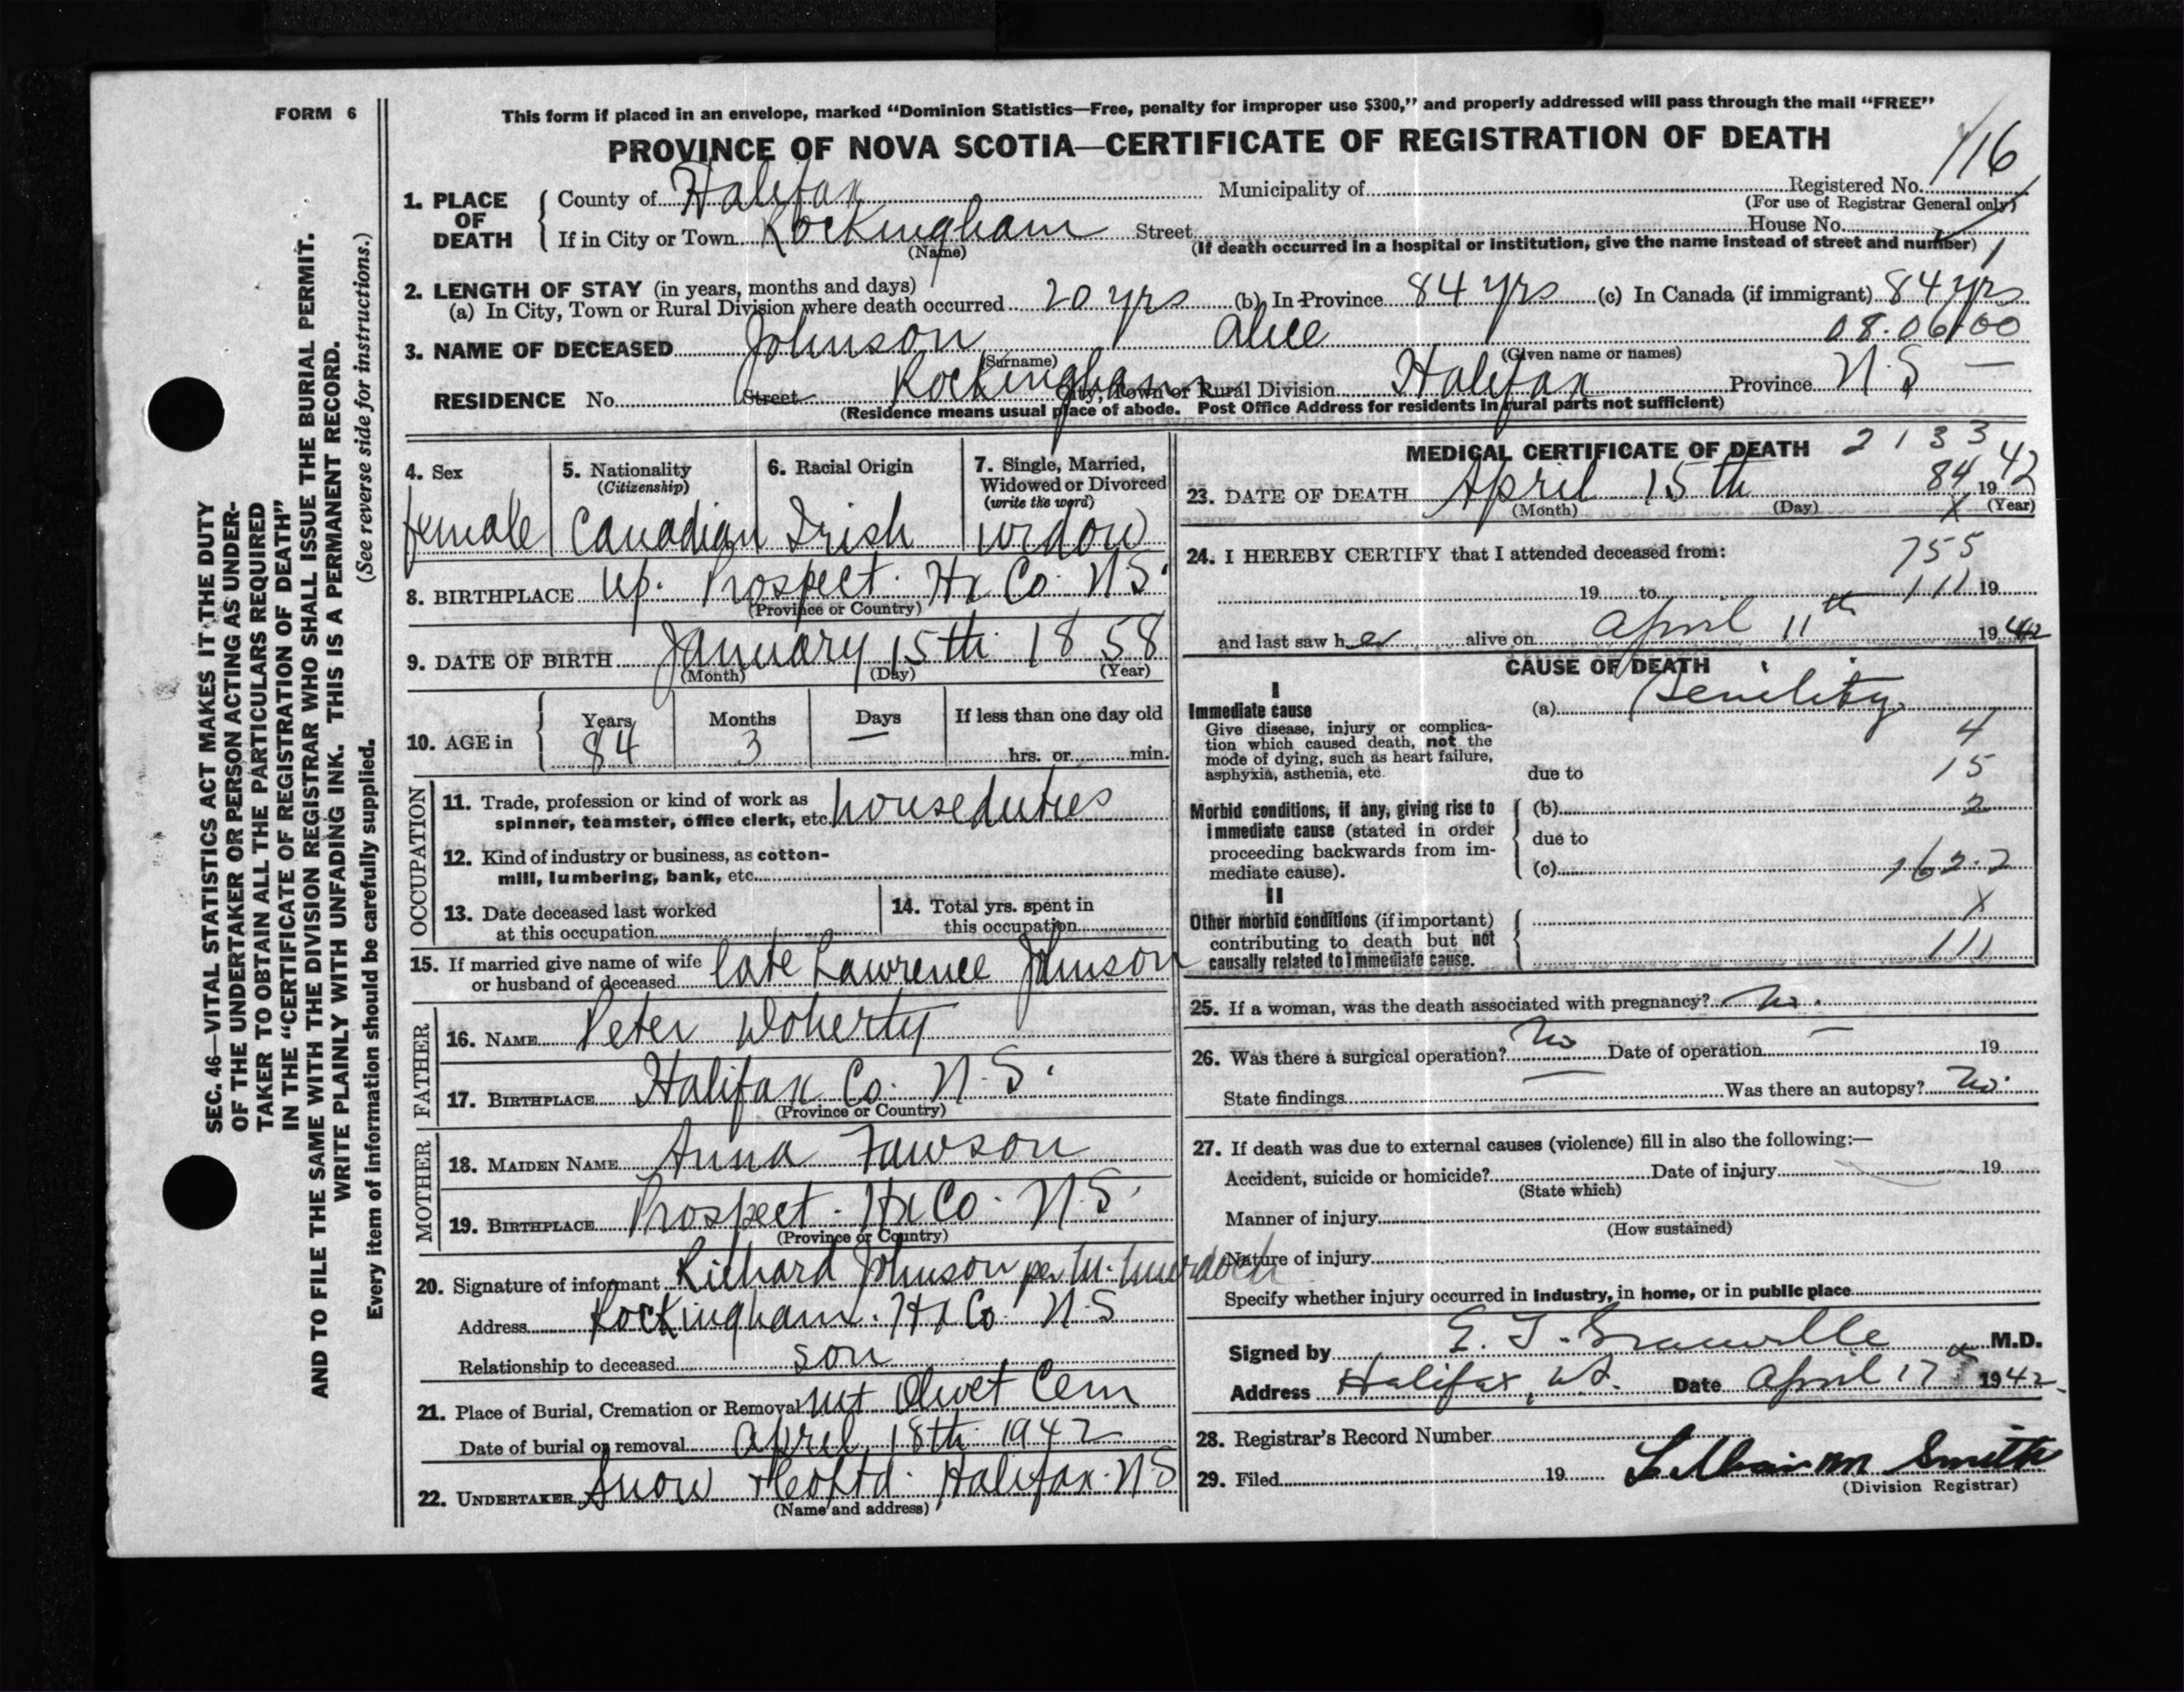 FORM 6
This form if placed in an envelope, marked "Dominion Statistics—Free, penalty for improper use $300," and properly addressed will pass through the mail "FREE"
PROVINCE OF NOVA SCOTIA—CERTIFICATE OF REGISTRATION OF DEATH
116
1. PLACE OF DEATH
County of Halifax Municipality of Registered No.
(For use of Registrar General only)
If in City or Town Rockingham Street House No.
(Name) (If death occurred in a hospital or institution, give the name instead of street and number)
1
2. LENGTH OF STAY (in years, months and days)
(a) In City, Town or Rural Division where death occurred 20 yrs (b) In Province 84 yrs (c) In Canada (if immigrant) 84 yrs
3. NAME OF DECEASED Johnson Alice 08.06.00
(Surname) (Given name or names)
RESIDENCE No. Street Rockingham City, Town or Rural Division Halifax Province N.S —
(Residence means usual place of abode. Post Office Address for residents in rural parts not sufficient)
4. Sex 5. Nationality 6. Racial Origin 7. Single, Married,
(Citizenship) Widowed or Divorced
(write the word)
female Canadian Irish widow
8. BIRTHPLACE Up. Prospect. Hx Co. N.S.
(Province or Country)
9. DATE OF BIRTH January 15th 1858
(Month) (Day) (Year)
10. AGE in Years Months Days If less than one day old
84 3 — hrs. or min.
OCCUPATION
11. Trade, profession or kind of work as
spinner, teamster, office clerk, etc. houseduties
12. Kind of industry or business, as cotton-
mill, lumbering, bank, etc.
13. Date deceased last worked
at this occupation
14. Total yrs. spent in
this occupation
15. If married give name of wife
or husband of deceased late Lawrence Johnson
FATHER
16. NAME Peter Doherty
17. BIRTHPLACE Halifax Co. N.S.
(Province or Country)
MOTHER
18. MAIDEN NAME Anna Fawson
19. BIRTHPLACE Prospect. Hx Co. N.S.
(Province or Country)
20. Signature of informant Richard Johnson per M. Murdoch
Address Rockingham. Hx Co. N.S
Relationship to deceased son
21. Place of Burial, Cremation or Removal Mt Olivet Cem
Date of burial or removal April 18th 1942
22. UNDERTAKER Snow & Co Ltd. Halifax. N.S
(Name and address)
MEDICAL CERTIFICATE OF DEATH 2133
84
23. DATE OF DEATH April 15th 1942
(Month) (Day) (Year)
X
24. I HEREBY CERTIFY that I attended deceased from:
755
19 to 111 19
and last saw her alive on April 11th 1942
CAUSE OF DEATH
I
Immediate cause
Give disease, injury or complica-
tion which caused death, not the
mode of dying, such as heart failure,
asphyxia, asthenia, etc.
(a) Senility
4
due to 15
Morbid conditions, if any, giving rise to
immediate cause (stated in order
proceeding backwards from im-
mediate cause).
(b) 2
due to
(c) 162.2
II
Other morbid conditions (if important)
contributing to death but not
causally related to immediate cause.
X
111
25. If a woman, was the death associated with pregnancy? No.
26. Was there a surgical operation? No Date of operation — 19
State findings — Was there an autopsy? No.
27. If death was due to external causes (violence) fill in also the following:—
Accident, suicide or homicide? Date of injury 19
(State which)
Manner of injury
(How sustained)
Nature of injury
Specify whether injury occurred in industry, in home, or in public place
Signed by E. T. Granville M.D.
Address Halifax, N.S. Date April 17 1942
28. Registrar's Record Number
29. Filed 19 Lillian M Smith
(Division Registrar)
SEC. 46—VITAL STATISTICS ACT MAKES IT THE DUTY
OF THE UNDERTAKER OR PERSON ACTING AS UNDER-
TAKER TO OBTAIN ALL THE PARTICULARS REQUIRED
IN THE "CERTIFICATE OF REGISTRATION OF DEATH"
AND TO FILE THE SAME WITH THE DIVISION REGISTRAR WHO SHALL ISSUE THE BURIAL PERMIT.
WRITE PLAINLY WITH UNFADING INK. THIS IS A PERMANENT RECORD.
Every item of information should be carefully supplied. (See reverse side for instructions.)